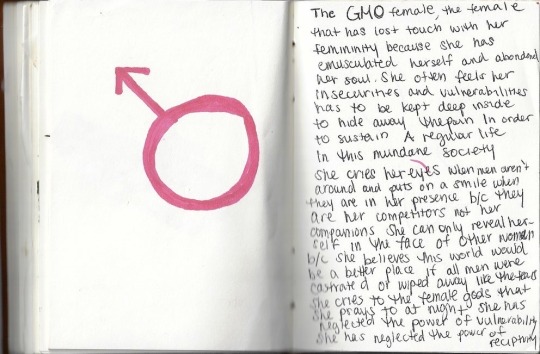 The GMO female, the female
that has lost touch with her
femininity because she has
emusculated herself and abondend
her soul. She often feels her
insecurities and vulnerabilities
has to be kept deep inside
to hide away the pain in order
to sustain A regular life
in this mundane society
she cries her eyes when men aren't
around and puts on a smile when
they are in her presence b/c they
are her competitors not her
companions she can only reveal her-
self in the face of other women
b/c she believes this world would
be a better place if all men were
castrated or wiped away like the tears
she cries to the female gods that
she prays to at night she has
neglected the power of vulnerability
she has neglected the power of
reciprity